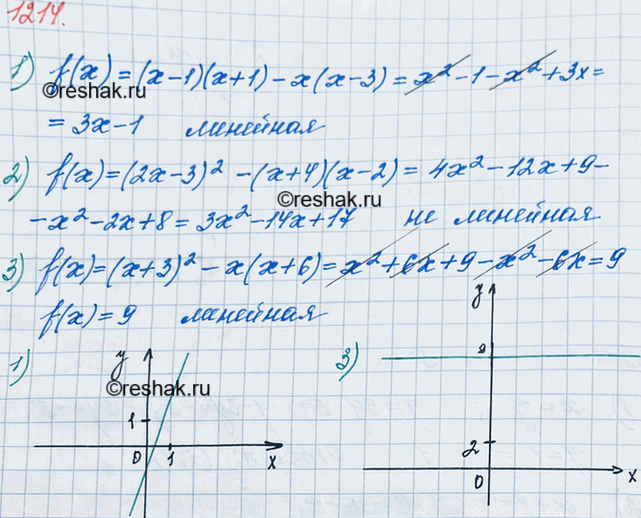 1214.
1) f(x) = (x-1)(x+1) - x(x-3) = x² - 1 - x² + 3x =
©reshak.ru
= 3x-1 линейная
2) f(x) = (2x-3)² - (x+4)(x-2) = 4x² - 12x + 9 -
©reshak.ru
- x² - 2x + 8 = 3x² - 14x + 17 не линейная
3) f(x) = (x+3)² - x(x+6) = x² + 6x + 9 - x² - 6x = 9
f(x) = 9 линейная
1) y 3) y
9
©reshak.ru
1
2
0 1 x
0 x